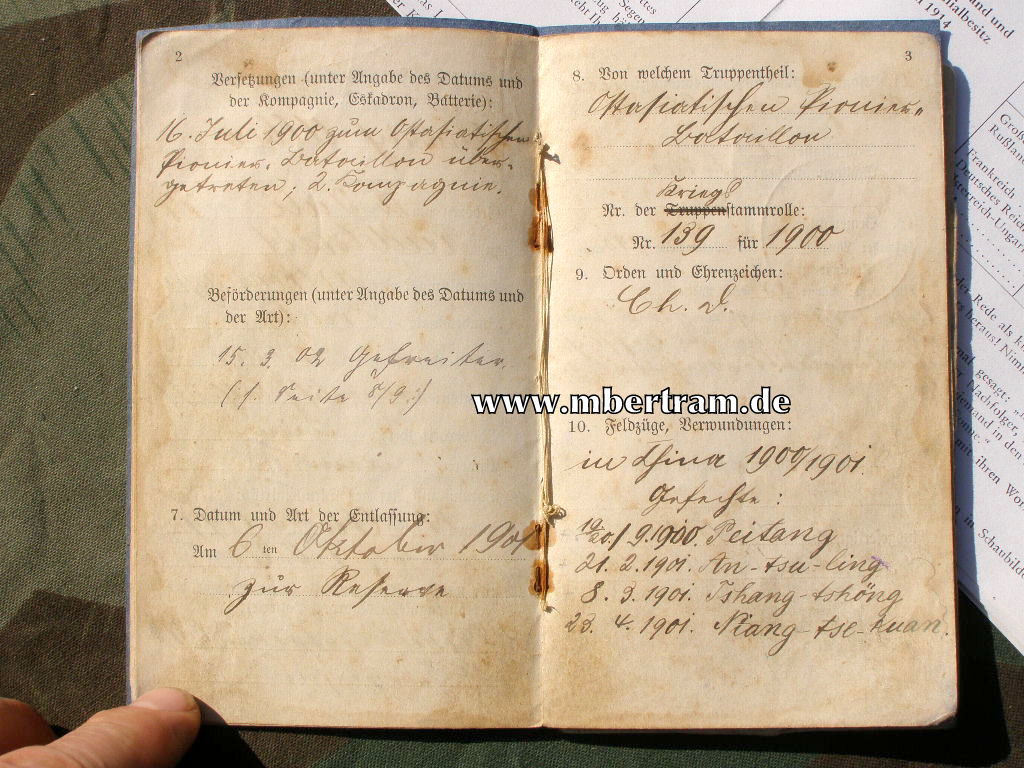 2
Versetzungen (unter Angabe des Datums und
der Kompagnie, Eskadron, Batterie):
16. Juli 1900 zum Ostasiatischen
Pionier-Bataillon über-
getreten; 2. Kompagnie.
Beförderungen (unter Angabe des Datums und
der Art):
15. 3. 02 Gefreiter.
(:s. Seite 8/9:)
7. Datum und Art der Entlassung:
Am 6 ten Oktober 1901
zur Reserve
3
8. Von welchem Truppentheil:
Ostasiatischen Pionier-
Bataillon
Kriegs
Nr. der Truppenstammrolle:
Nr. 139 für 1900
9. Orden und Ehrenzeichen:
Ch. D.
www.mbertram.de
10. Feldzüge, Verwundungen:
in China 1900/1901
Gefechte:
19/20./9.1900. Peitang
21. 2. 1901. An-tsu-ling
8. 3. 1901. Tshang-tshöng
23. 4. 1901. Niang-tse-kuan.
und und
1914
Frankreich
Deutsches Reich
Österreich-Ungarn
der Rede als
heraus! Nimm
gesagt:
Nachfolger,
in den
mit ihren Wor
in Schaubild